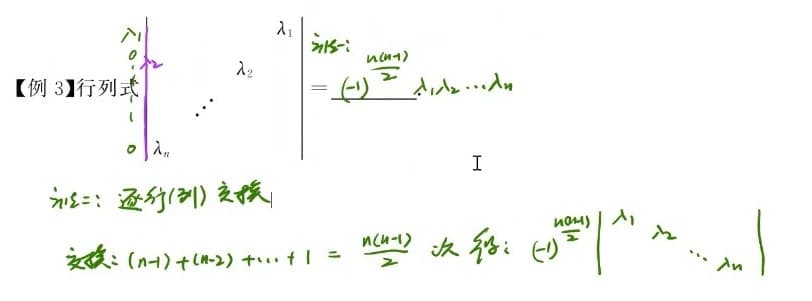 【例 3】行列式 | λ₁ λ₂ ⋰ λₙ | = (-1)^{n(n-1)/2} λ₁λ₂⋯λₙ
λ₁
0
λ₂
1
0
方法一:
方法二: 逐行(列)交换
交换: (n-1)+(n-2)+⋯+1 = n(n-1)/2 次 得: (-1)^{n(n-1)/2} | λ₁ λ₂ ⋯ λₙ |